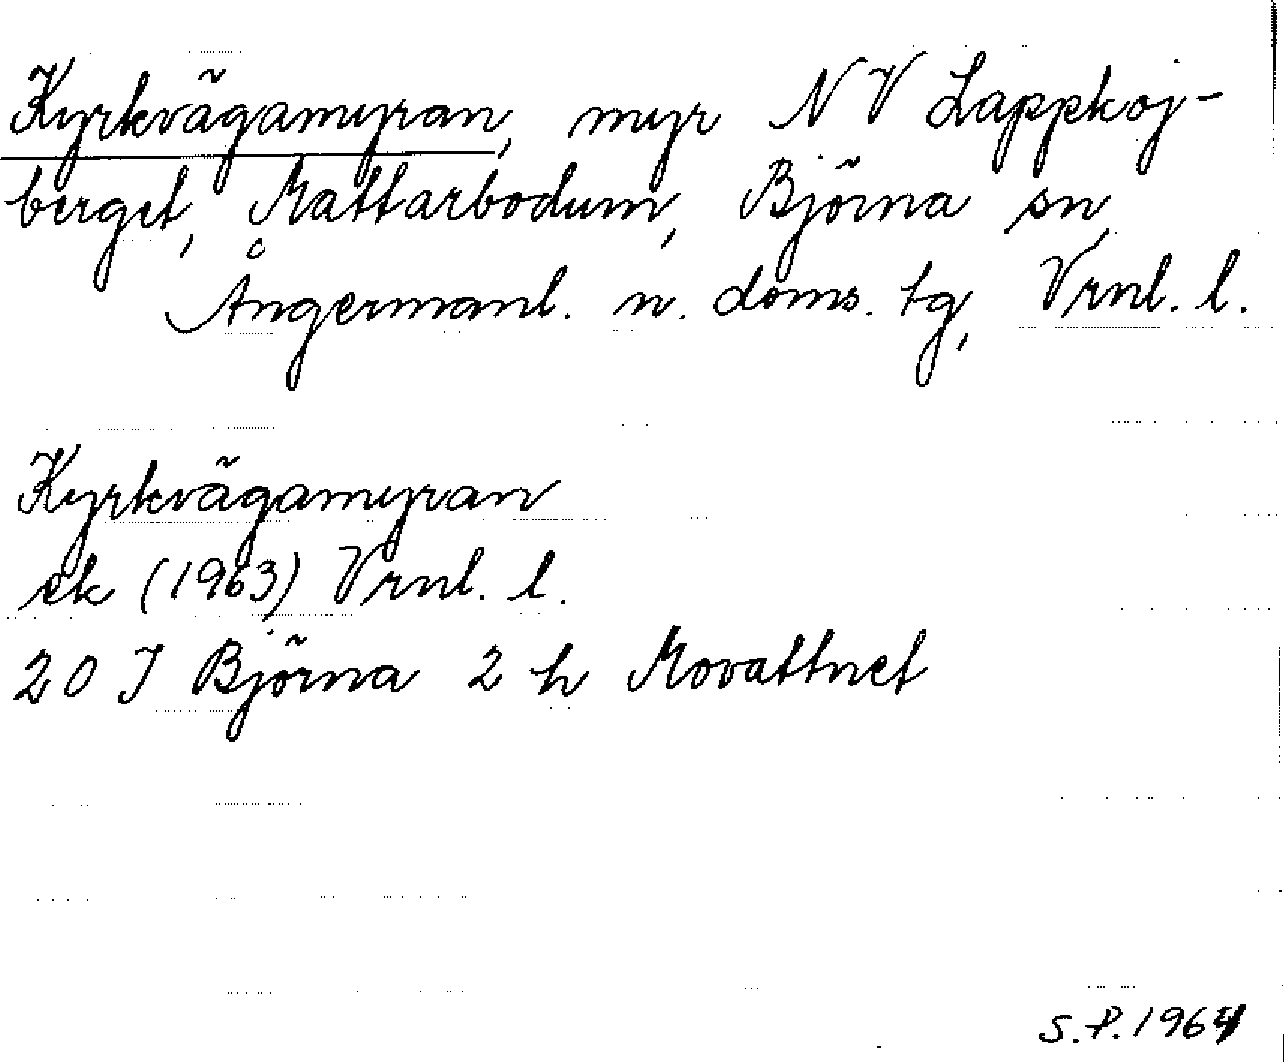 Kyrkvägamyran, myr NV Lappkoj-
berget, Mattarbodum, Björna sn,
Ångermanl. n. doms. tg, Vrnl. l.
Kyrkvägamyran
ek (1963) Vrnl. l.
20 J Björna 2 h Movattnet
S.P. 1964